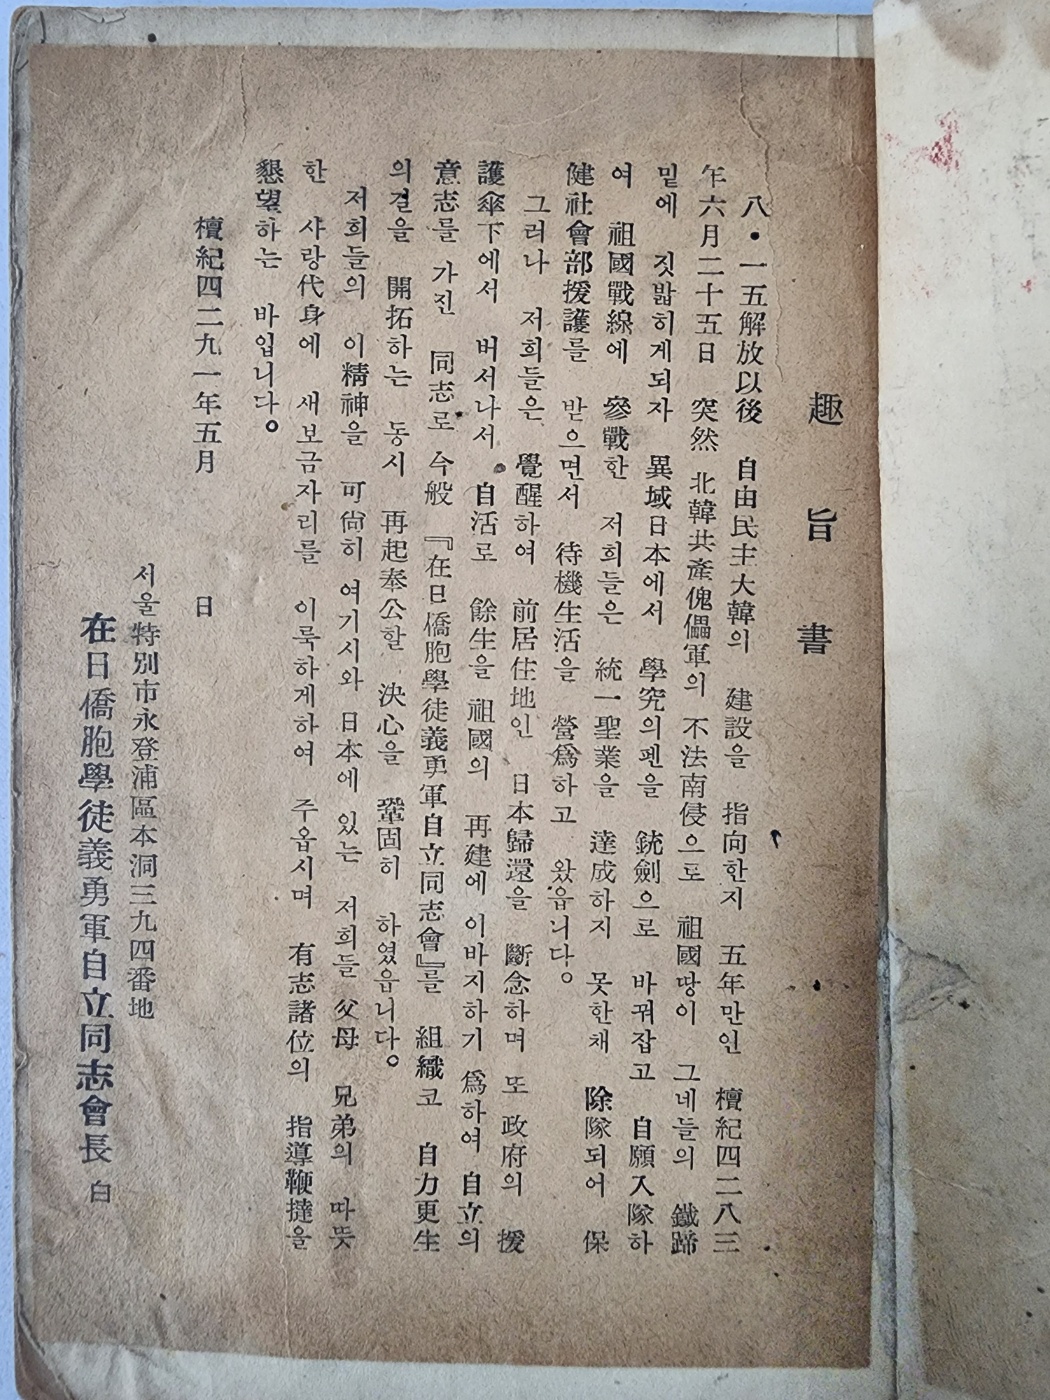 趣旨書
八・一五解放以後 自由民主大韓의 建設을 指向한지 五年만인 檀紀四二八三
年六月二十五日 突然 北韓共產傀儡軍의 不法南侵으로 祖國땅이 그네들의 鐵蹄
밑에 짓밟히게되자 異域日本에서 學究의펜을 銃劍으로 바꿔잡고 自願入隊하
여 祖國戰線에 參戰한 저희들은 統一聖業을 達成하지 못한채 除隊되어 保
健社會部援護를 받으면서 待機生活을 營爲하고 왔읍니다。
그러나 저희들은 覺醒하여 前居住地인 日本歸還을 斷念하며 또 政府의 援
護傘下에서 버서나서 自活로 餘生을 祖國의 再建에 이바지하기 爲하여 自立의
意志를 가진 同志로 今般 『在日僑胞學徒義勇軍自立同志會』를 組織코 自力更生
의길을 開拓하는 동시 再起奉公할 決心을 鞏固히 하였읍니다。
저희들의 이精神을 可尙히 여기시와 日本에 있는 저희들 父母 兄弟의 따뜻
한 사랑代身에 새보금자리를 이룩하게하여 주옵시며 有志諸位의 指導鞭撻을
懇望하는 바입니다。
檀紀四二九一年五月 日
서울特別市永登浦區本洞三九四番地
在日僑胞學徒義勇軍自立同志會長 白